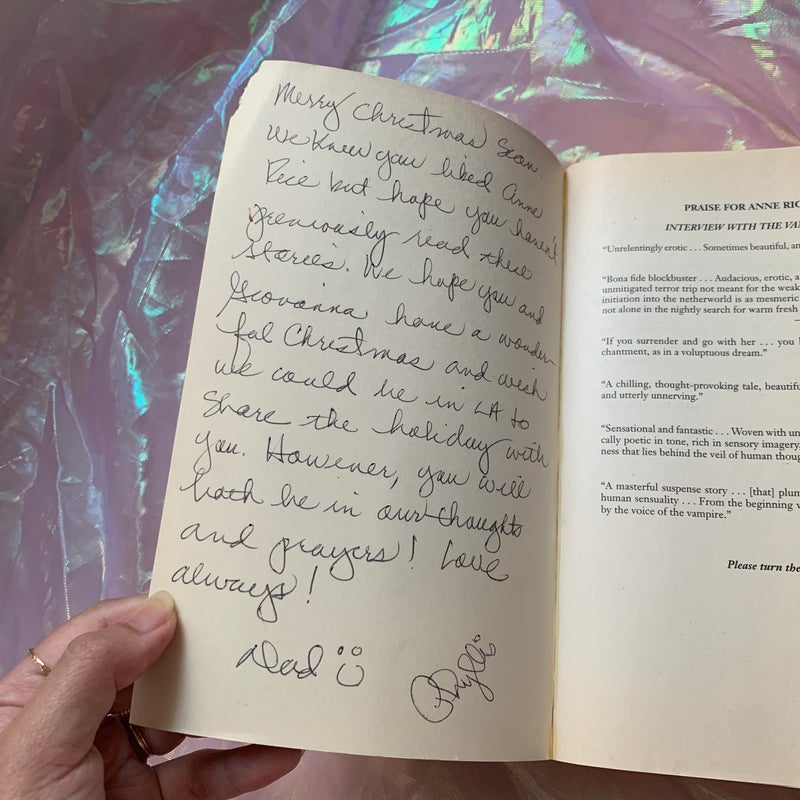 Merry Christmas Sean.
We knew you liked Anne
Rice but hope you haven't
previously read these
stories. We hope you and
Giovanna have a wonder-
ful Christmas and wish
we could be in LA to
share the holiday with
you. However, you will
both be in our thoughts
and prayers! Love
always!
Dad
Phyllis
PRAISE FOR ANNE RIC
INTERVIEW WITH THE VA
“Unrelentingly erotic . . . Sometimes beautiful, an
“Bona fide blockbuster . . . Audacious, erotic, a
unmitigated terror trip not meant for the weak
initiation into the netherworld is as mesmeric
not alone in the nightly search for warm fresh
“If you surrender and go with her . . . you
chantment, as in a voluptuous dream.”
“A chilling, thought-provoking tale, beautifu
and utterly unnerving.”
“Sensational and fantastic . . . Woven with un
cally poetic in tone, rich in sensory imagery,
ness that lies behind the veil of human thoug
“A masterful suspense story . . . [that] plum
human sensuality . . . From the beginning
by the voice of the vampire.”
Please turn the